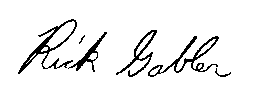 Rick Gabler